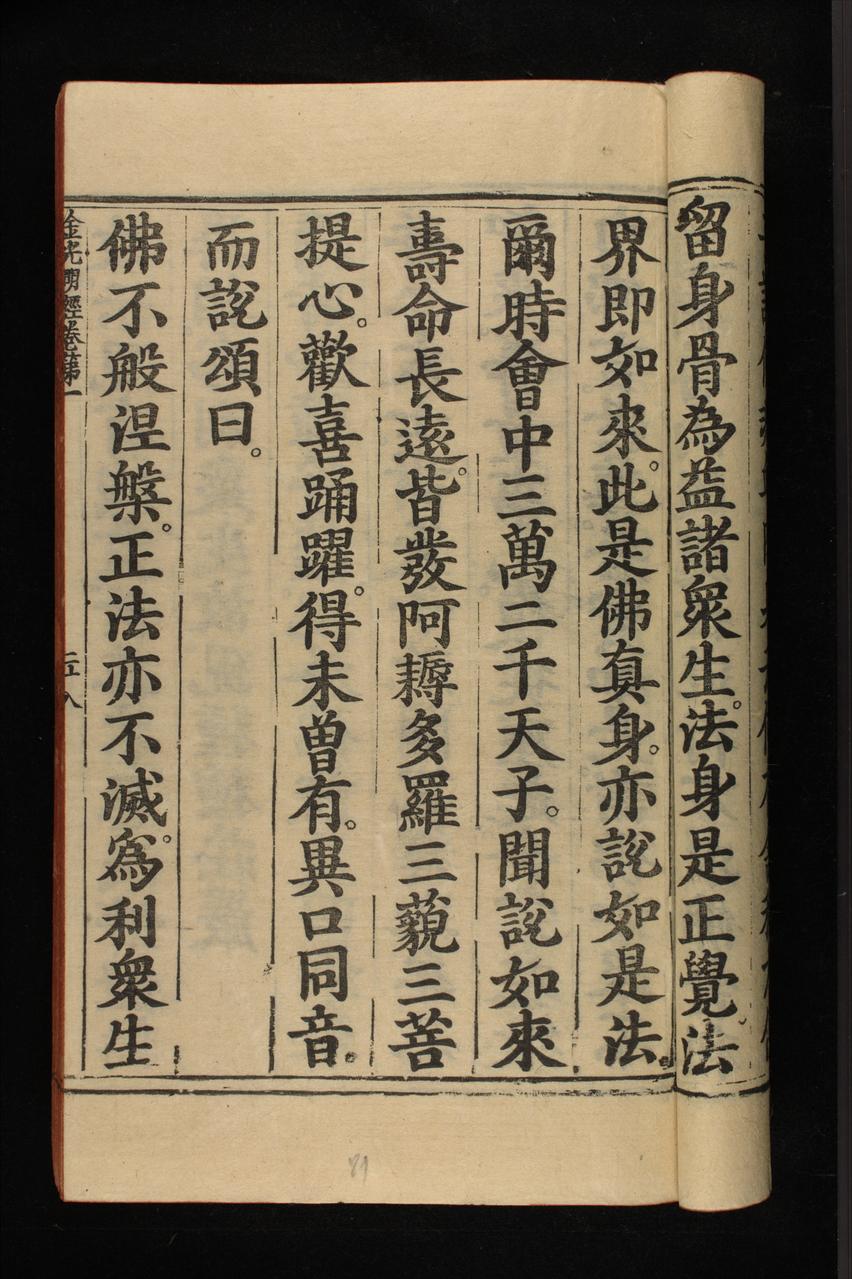 留身骨為益諸衆生。法身是正覺。法
界即如來。此是佛真身。亦說如是法。
爾時會中三萬二千天子。聞說如來
壽命長遠。皆發阿耨多羅三藐三菩
提心。歡喜踊躍。得未曾有。異口同音。
而說頌曰。
佛不般涅槃。正法亦不滅。為利衆生
金光明經卷第一